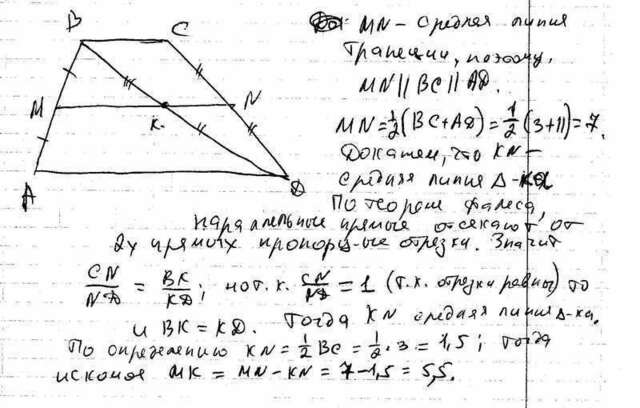 B C
M N
K.
A D
MN – средняя линия
трапеции, поэтому,
MN || BC || AD.
MN = 1/2 (BC + AD) = 1/2 (3 + 11) = 7.
Докажем, что KN –
средняя линия Δ-ка
По теореме Фалеса,
параллельные прямые отсекают от
2х прямых пропорц-ые отрезки. Значит
CN/ND = BK/KD; но т. к. CN/ND = 1 (т.к. отрезки равны) то
и BK = KD. Тогда KN средняя линия Δ-ка.
По определению KN = 1/2 BC = 1/2 · 3 = 1,5; тогда
искомая MK = MN – KN = 7 – 1,5 = 5,5.